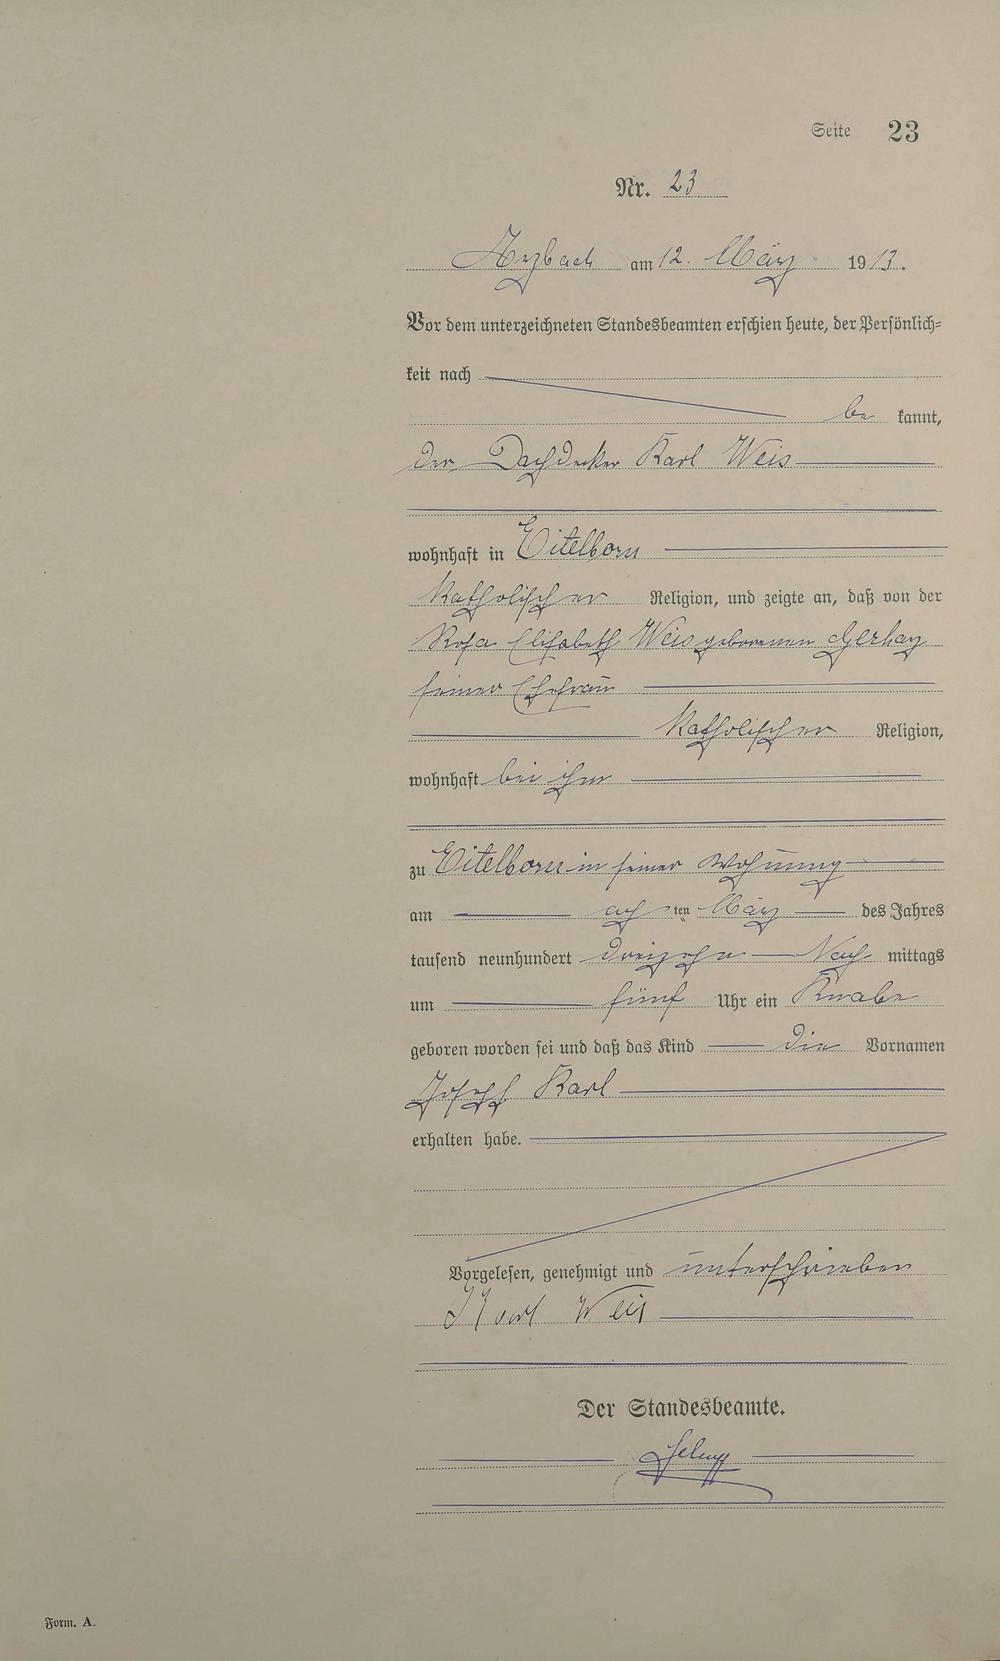 Seite 23
Nr. 23
Arzbach am 12. März 1913.
Vor dem unterzeichneten Standesbeamten erschien heute, der Persönlich=
keit nach
be kannt,
der Dachdecker Karl Weis
wohnhaft in Eitelborn
katholischer Religion, und zeigte an, daß von der
Rosa Elisabeth Weis geborenen Gerharz
seiner Ehefrau
katholischer Religion,
wohnhaft bei ihm
zu Eitelborn in seiner Wohnung
am achten März des Jahres
tausend neunhundert dreizehn Nach mittags
um fünf Uhr ein Knabe
geboren worden sei und daß das Kind die Vornamen
Joseph Karl
erhalten habe.
Vorgelesen, genehmigt und unterschrieben
Karl Weis
Der Standesbeamte.
Form. A.